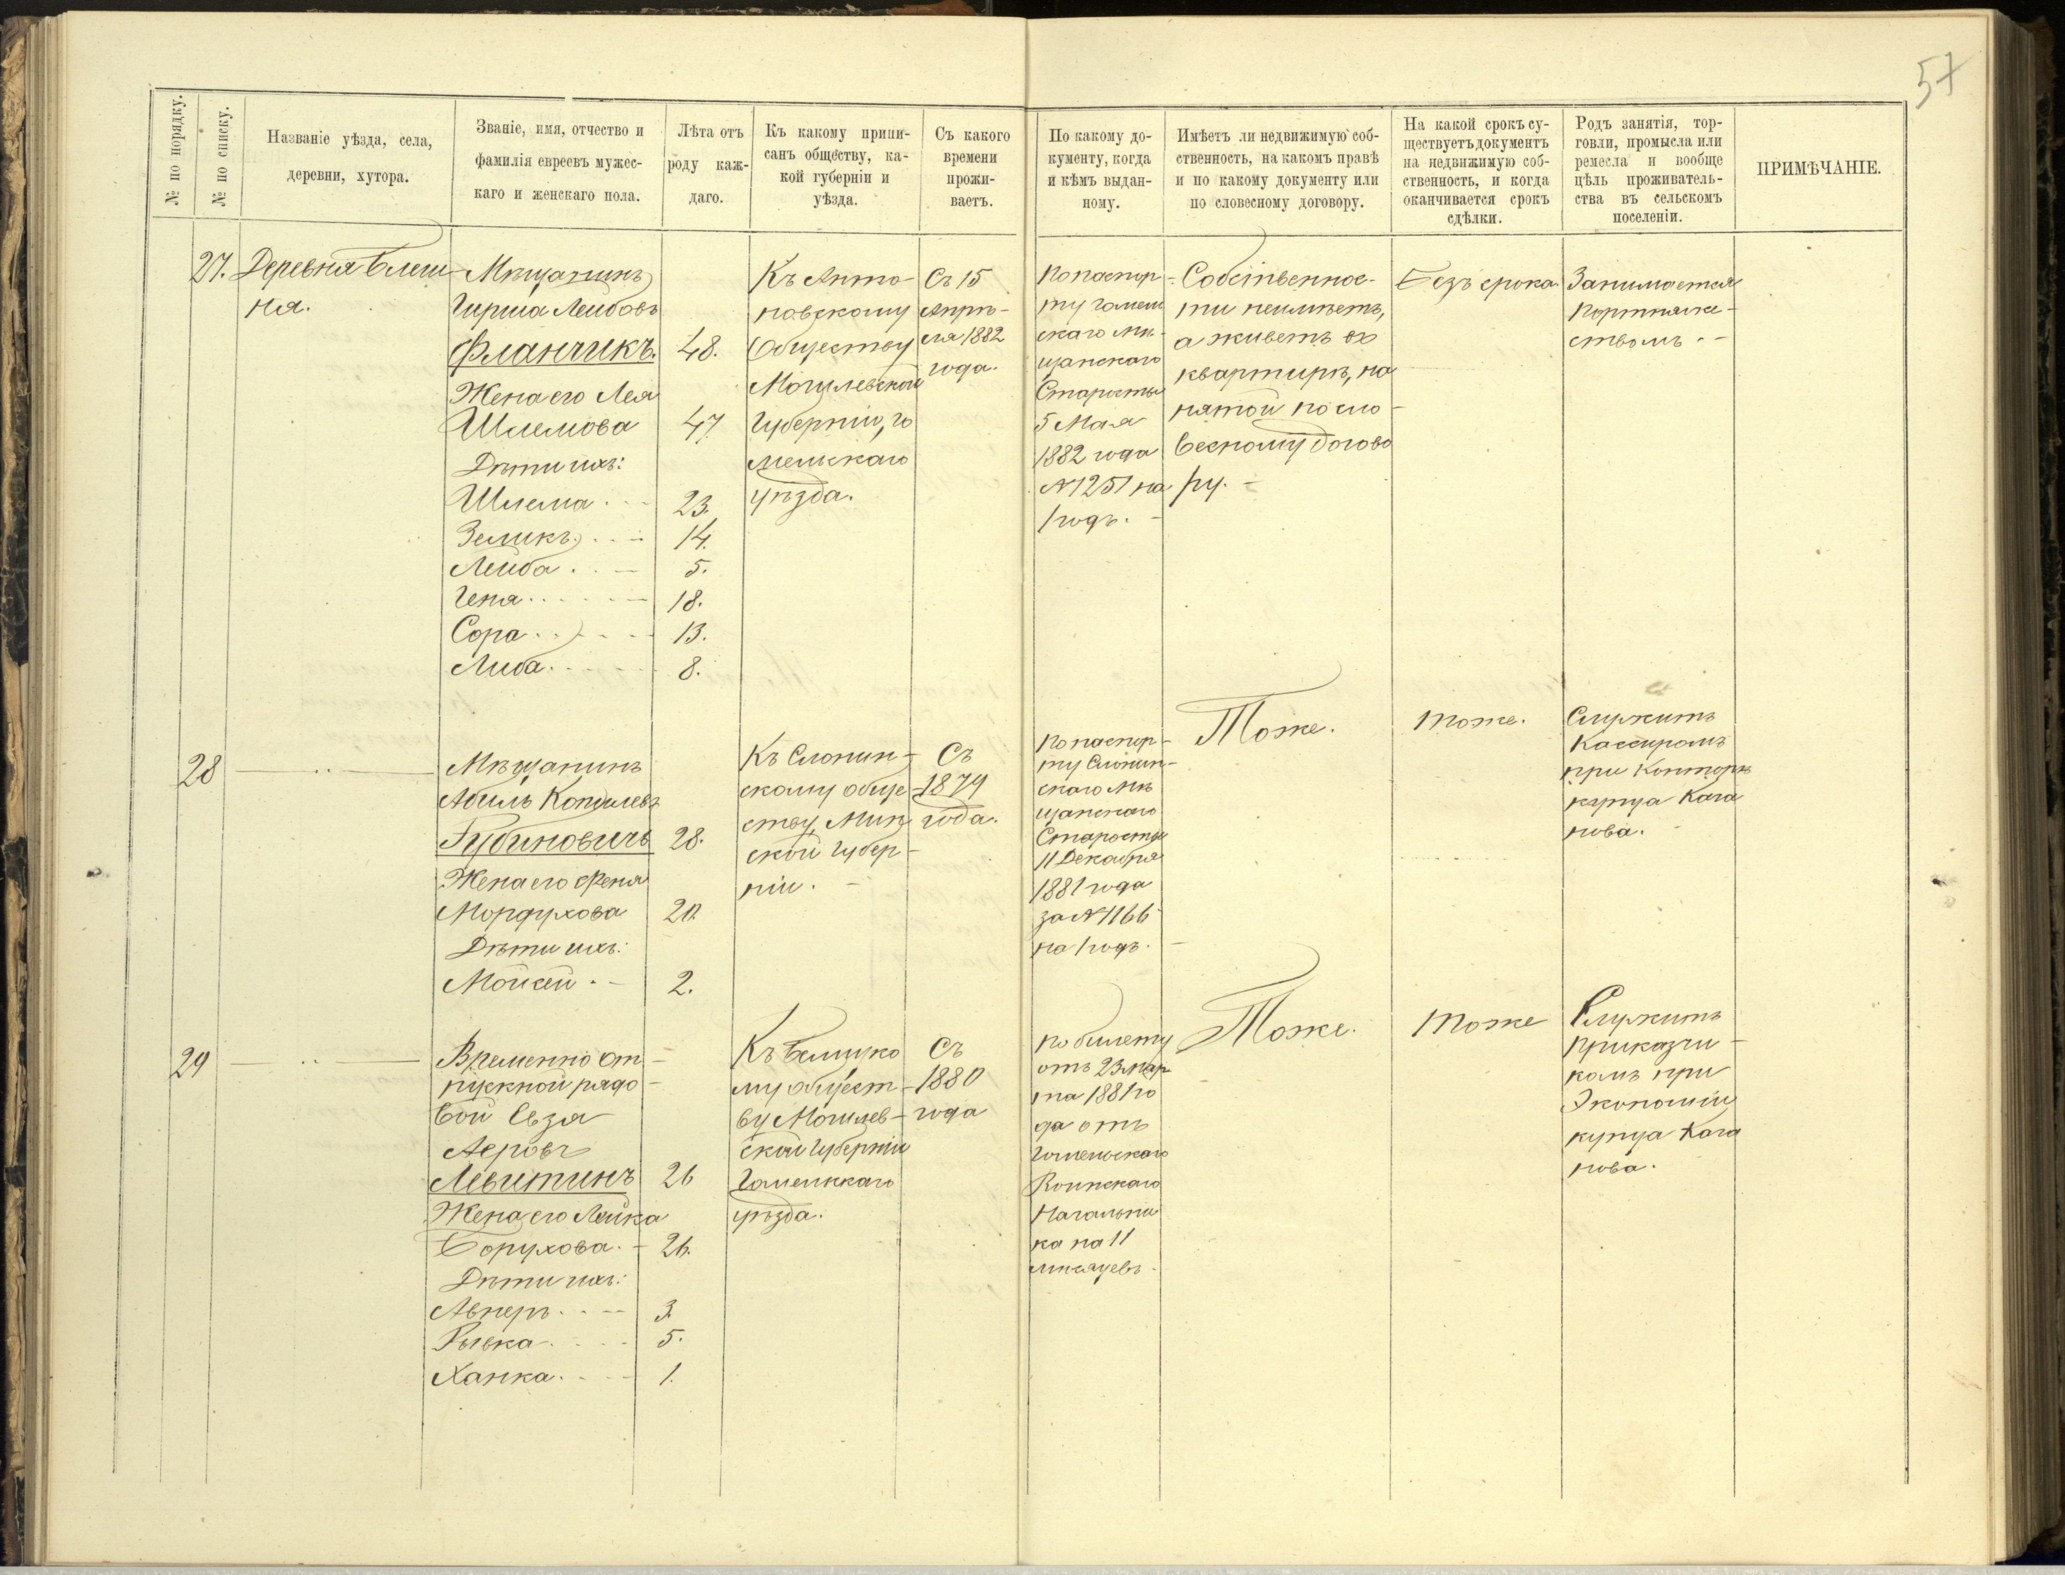 57
№ по порядку.
№ по списку.
Названіе уѣзда, села,
деревни, хутора.
Званіе, имя, отчество и
фамилія евреевъ мужес-
каго и женскаго пола.
Лѣта отъ
роду каж-
даго.
Къ какому припи-
санъ обществу, ка-
кой губерніи и
уѣзда.
Съ какого
времени
прожи-
ваетъ.
По какому до-
кументу, когда
и кѣмъ выдан-
ному.
Имѣетъ ли недвижимую соб-
ственность, на какомъ правѣ
и по какому документу или
по словесному договору.
На какой срокъ су-
ществуетъ документъ
на недвижимую соб-
ственность, и когда
оканчивается срокъ
сдѣлки.
Родъ занятія, тор-
говли, промысла или
ремесла и вообще
цѣль проживатель-
ства въ сельскомъ
поселеніи.
ПРИМѢЧАНІЕ.
27.
Деревня Блеш
ня.
Мѣщанинъ
Гирша Лейбовъ
Фланчикъ.
48.
Жена его Лея
Шлемова
47
Дѣти ихъ:
Шлема
23.
Зеликъ
14.
Лейба
5.
Геня
18.
Сора
13.
Либа
8.
Къ
Обществу
Могилевской
Губерніи, Го
мельскаго
уѣзда.
Съ 15
Апрѣ-
ля 1882
года.
По паспор-
ту Гомель
скаго Мѣ-
щанскаго
Старосты
5 Мая
1882 года
№ 1251 на
1 годъ.
Собственнос-
ти неимѣетъ,
а живетъ въ
квартирѣ, на
нятой по сло-
весному догово
ру.
Безъ срока
Занимается
Портняже-
ствомъ.
28
Мѣщанинъ
Абиль
Губиновичъ
28.
Жена его Феня
Мордухова
20.
Дѣти ихъ:
Мойсей
2.
Къ Слонин-
скому обще
ству, Мин
ской Губер-
ніи.
Съ
1879
года.
По паспор-
ту Слонин-
скаго Мѣ
щанскаго
Старосты
11 Декабря
1881 года
за № 1166
на 1 годъ.
Тоже.
тоже.
Служитъ
Кассиромъ
при Конторѣ
купца Кага
нова.
29
Временно от-
пускной рядо-
вой Евзя
Аеровъ
Левитинъ
26
Жена его Лейка
Борухова.
26.
Дѣти ихъ:
Авнеръ
3.
Рывка
5.
Ханка
1.
Къ Белицко
му общест-
ву Могилев-
ской Губерніи
Гомельскаго
уѣзда.
Съ
1880
года
По билету
отъ 23 Мар
та 1881 го
да отъ
Гомельскаго
Воинскаго
Начальни
ка на 11
мѣсяцевъ.
Тоже.
тоже
Служитъ
Приказчи-
комъ при
Экономіи
купца Кага
нова.